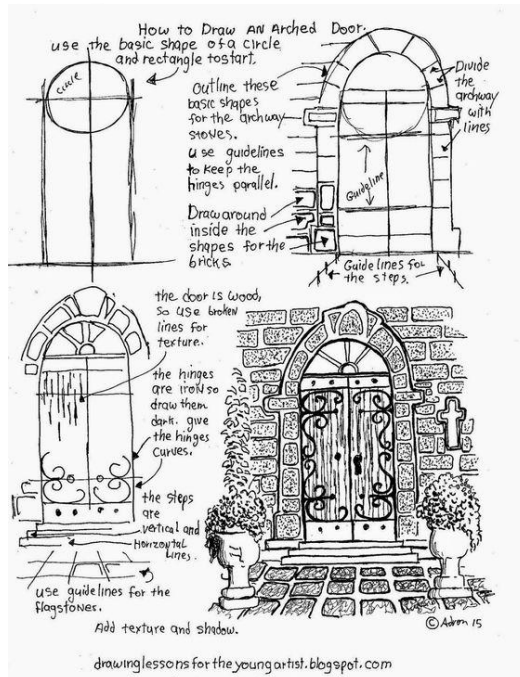 How to Draw An Arched Door.
use the basic shape of a circle
and rectangle to start.
circle
Outline these
basic shapes
for the archway
stones.
Divide
the
archway
with
lines
use guidelines
to keep the
hinges parallel.
Guideline
Draw around
inside the
shapes for the
bricks
Guide lines for
the steps.
the door is wood,
so use broken
lines for
texture.
the hinges
are iron so
draw them
dark. give
the hinges
curves.
the steps
are
vertical and
Horizontal
Lines.
use guidelines for the
flagstones.
Add texture and shadow.
© Adron 15
drawinglessonsfortheyoungartist.blogspot.com